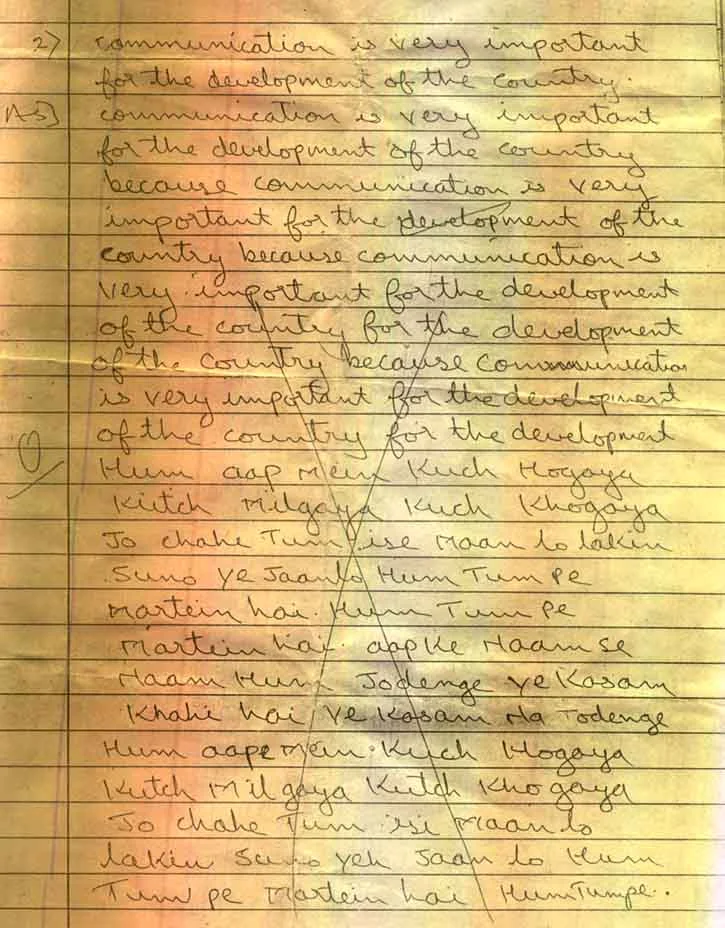 2) communication is very important
for the development of the country.
A-5] communication is very important
for the development of the country
because communication is very
important for the development of the
country because communication is
very important for the development
of the country for the development
of the country because communication
is very important for the development
of the country for the development
0
Hum aap mein Kuch Hogaya
Kutch Milgaya Kuch Khogaya
Jo chahe Tum ise Maan lo lakin
Suno ye Jaanlo Hum Tum pe
Martein hai. Hum Tum pe
Martein hai. aap ke Naam se
Naam Hum Jodenge ye Kasam
Khahi hai ye Kasam Na Todenge
Hum aape mein Kuch Hogaya
Kutch Milgaya Kutch Khogaya
Jo chahe Tum isi Maan lo
lakin Suno yeh Jaan lo Hum
Tum pe Martein hai Hum Tumpe.